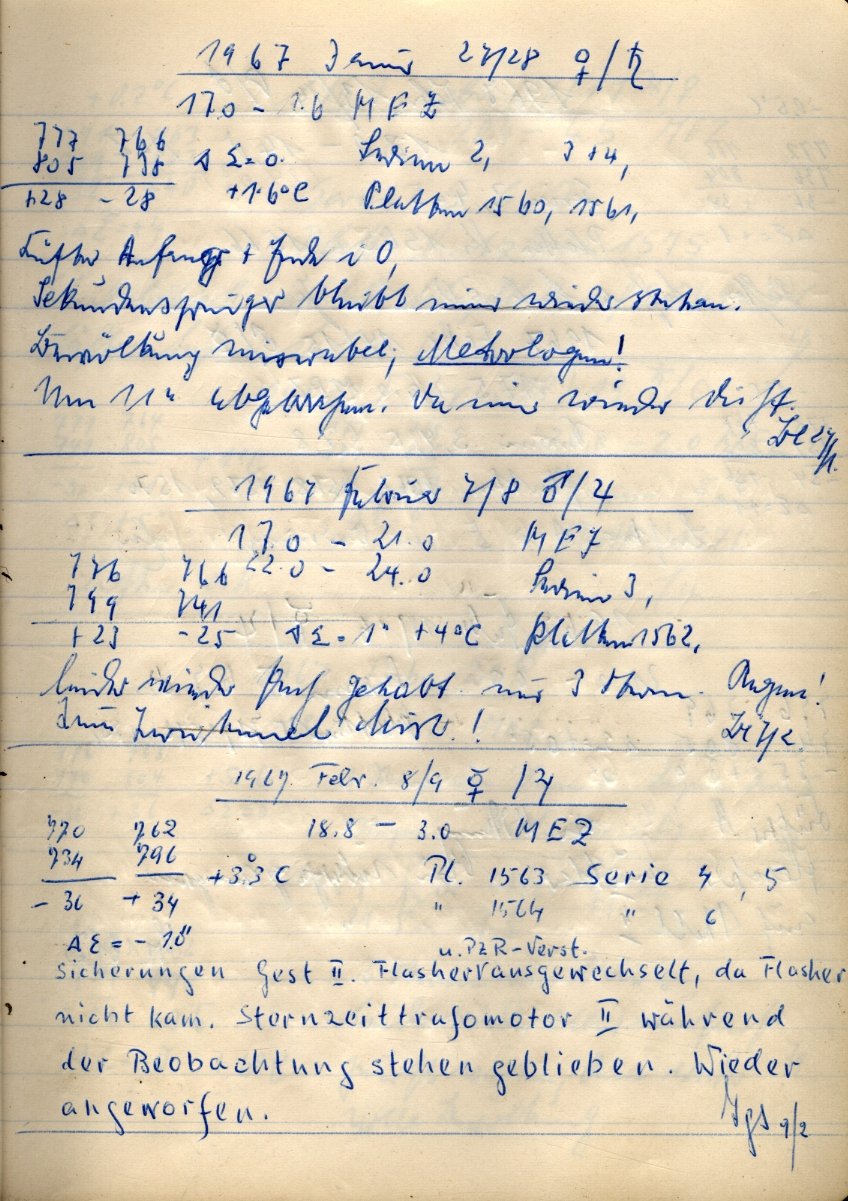 1967 Januar 27/28 ♀/♄
17.0 – 1.6 MEZ
777 766
805 738 Δ Σ = 0. Serien 2, 3+4,
+28 – 28 +1.6°C Platten 1560, 1561,
Lüfter Anfang + Ende i O,
Sekundenspringer bleibt immer wieder stehen.
Bewölkung miserabel, Metrologen!
Um 11h abgebrochen. Da immer wieder dicht.
27/1.
1967 Februar 7/8 ♂/♃
17.0 – 21.0 MEZ
776 766 22.0 – 24.0 Serien 3,
799 741
+23 -25 Δ Σ = 1" +4°C Platten 1562,
leider wieder gehabt nur 3 Augen!
Mist.! 7/2.
1967. Febr. 8/9 ☿ /♃
770 762 18.8 – 3.0 MEZ
734 796 +3.3°C Pl. 1563 Serie 4, 5
– 36 + 34 " 1564 " 6
Δ Σ = – 1.0"
u. PzR-Verst.
Sicherungen Gest II. Flasher ausgewechselt, da Flasher
nicht kam. Sternzeittrafomotor II während
der Beobachtung stehen geblieben. Wieder
angeworfen.
9/2